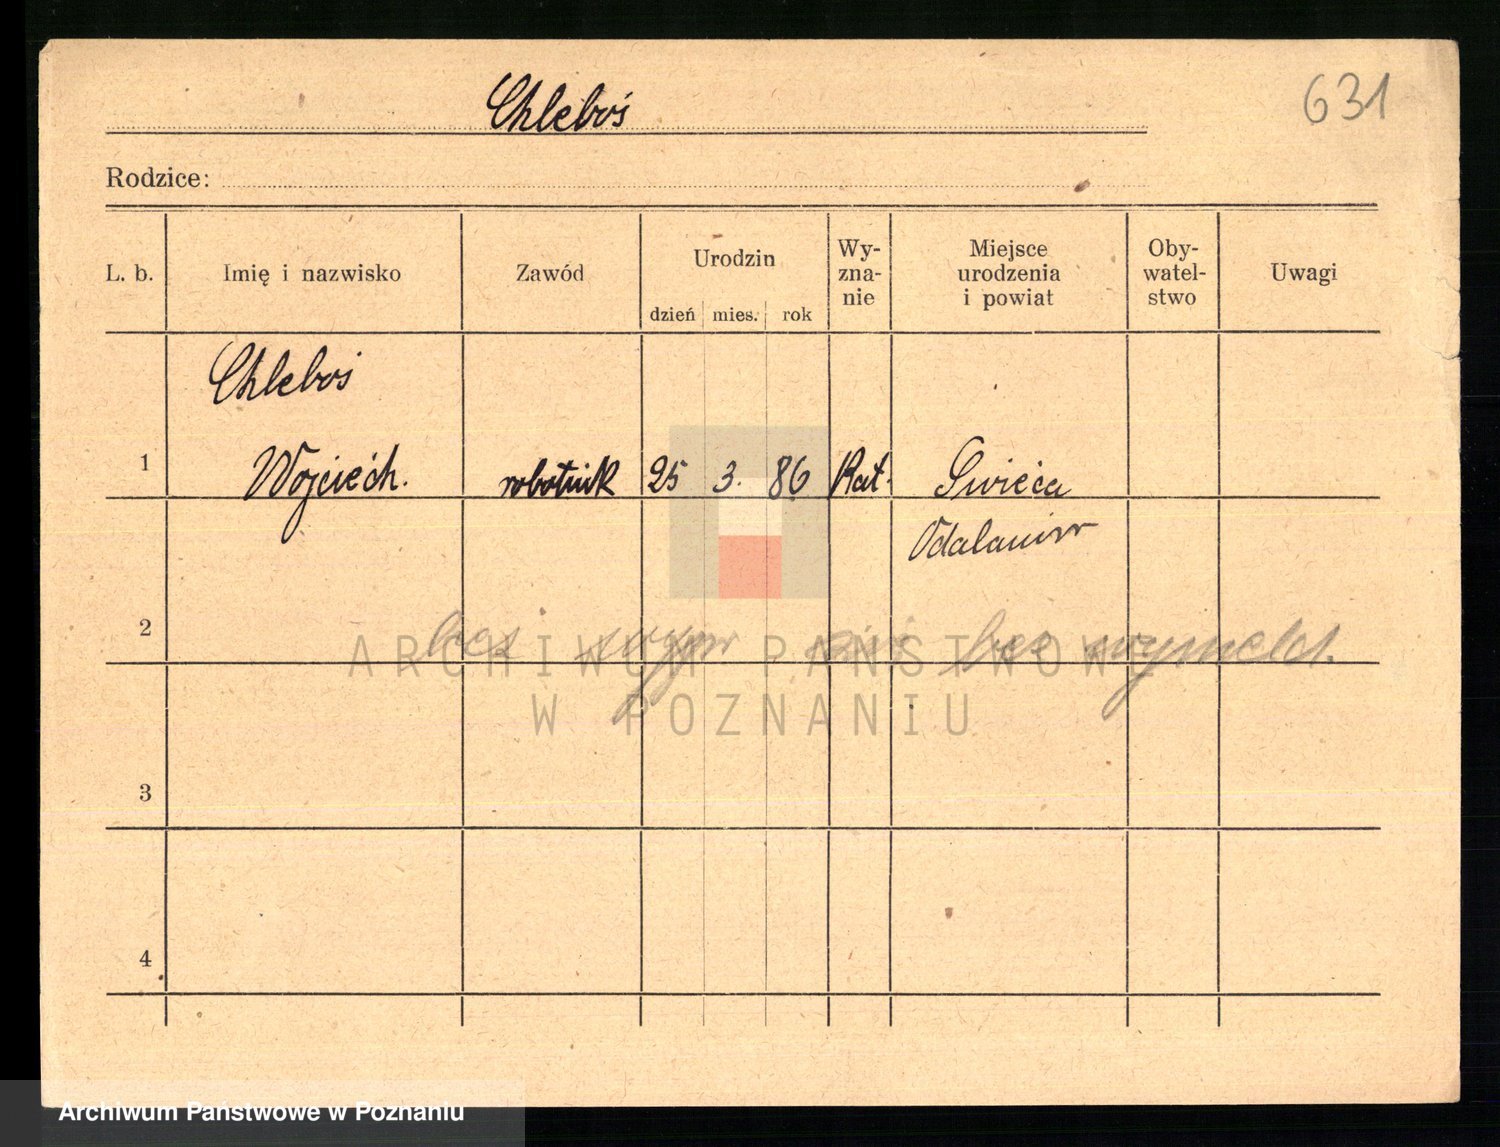 631
Chleboś
Rodzice:
L. b. Imię i nazwisko Zawód Urodzin dzień mies. rok Wy-zna-nie Miejsce urodzenia i powiat Oby-watel-stwo Uwagi
Chleboś
1 Wojciech. robotnik 25 3. 86 Kat. Świeca
Odalanów
2 bez bez wymeld.
ARCHIWUM PAŃSTWOWE
W POZNANIU
3
4
Archiwum Państwowe w Poznaniu